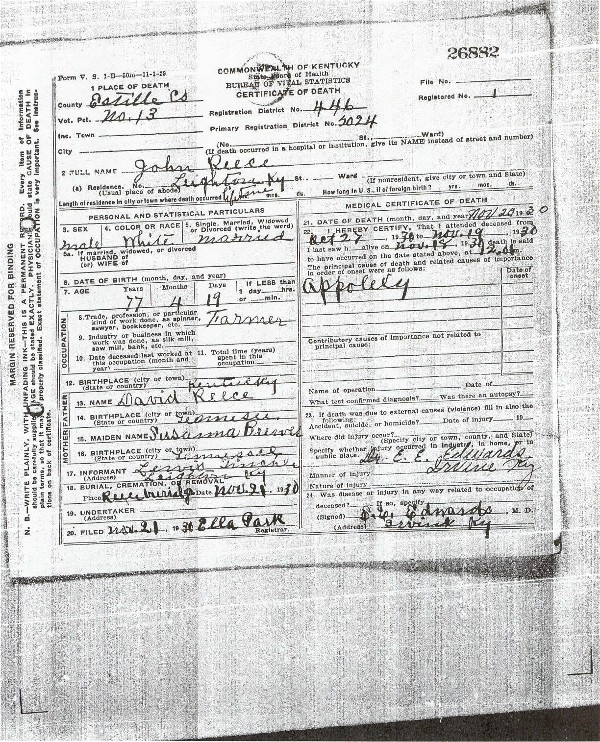 26882
Form V. S. 1-B—50m—11-1-29
COMMONWEALTH OF KENTUCKY
State Board of Health
BUREAU OF VITAL STATISTICS
CERTIFICATE OF DEATH
File No.
Registered No. 1
1 PLACE OF DEATH
County Estille Co
Vot. Pct. No. 13
Inc. Town
City
Registration District No. 446
Primary Registration District No. 5024
(No. St., Ward)
(If death occurred in a hospital or institution, give its NAME instead of street and number)
2 FULL NAME John Reece
(a) Residence. No. Leighton Ky St., Ward
(Usual place of abode) (If nonresident, give city or town and State)
Length of residence in city or town where death occurred lifetime mos. ds. How long in U. S., if of foreign birth? yrs. mos. ds.
PERSONAL AND STATISTICAL PARTICULARS
3. SEX 4. COLOR OR RACE 5. Single, Married, Widowed
or Divorced (write the word)
male White married
5a. If married, widowed, or divorced
HUSBAND of
(or) WIFE of
6. DATE OF BIRTH (month, day, and year)
7. AGE Years Months Days If LESS than
1 day hrs.
or min.
77 4 19
OCCUPATION
8. Trade, profession, or particular
kind of work done, as spinner,
sawyer, bookkeeper, etc. Farmer
9. Industry or business in which
work was done, as silk mill,
saw mill, bank, etc.
10. Date deceased last worked at
this occupation (month and
year)
11. Total time (years)
spent in this
occupation
12. BIRTHPLACE (city or town)
(State or country) Kentucky
FATHER
13. NAME David Reece
14. BIRTHPLACE (city or town)
(State or country)
MOTHER
15. MAIDEN NAME Susanna
16. BIRTHPLACE (city or town)
(State or country)
17. INFORMANT Lewis
(Address) Ky
18. BURIAL, CREMATION, OR REMOVAL
Place Date Nov. 21 1930
19. UNDERTAKER
(Address)
20. FILED Nov. 21 1930 Ella Park
Registrar.
MEDICAL CERTIFICATE OF DEATH
21. DATE OF DEATH (month, day, and year) Nov 20 1930
22. I HEREBY CERTIFY, That I attended deceased from
Oct 27 1930 to Nov. 19 1930
I last saw h alive on Nov. 19 1930 death is said
to have occurred on the date stated above, at
The principal cause of death and related causes of importance
in order of onset were as follows:
Date of
onset
Appolely
Contributory causes of importance not related to
principal cause:
Name of operation Date of
What test confirmed diagnosis? Was there an autopsy?
23. If death was due to external causes (violence) fill in also the
Accident, suicide, or homicide? Date of injury 19
Where did injury occur?
(Specify city or town, county, and State)
Specify whether injury occurred in industry, in home, or in
public place. E. E. Edwards
Manner of injury Irvine Ky
Nature of injury
24. Was disease or injury in any way related to occupation of
deceased? If so, specify
(Signed) E. E. Edwards M. D.
(Address) Irvine Ky
MARGIN RESERVED FOR BINDING
N. B.—WRITE PLAINLY, WITH UNFADING INK—THIS IS A PERMANENT RECORD. Every item of information
should be carefully supplied. AGE should be stated EXACTLY. PHYSICIANS should state CAUSE OF DEATH in
plain terms, so that it may be properly classified. Exact statement of OCCUPATION is very important. See instruc-
tions on back of certificate.